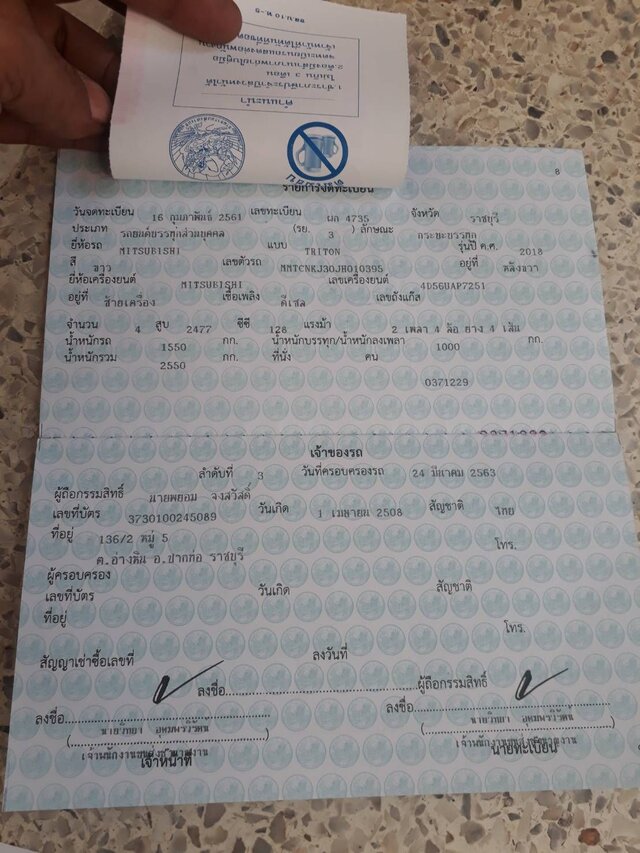 ขส.บ.10 ห-9
คำแนะนำ
1 ชำระภาษีประจำปีล่วงหน้าได้
ไม่เกิน 3 เดือน
รายการจดทะเบียน
8
วันจดทะเบียน 16 กุมภาพันธ์ 2561 เลขทะเบียน ผก 4735 จังหวัด ราชบุรี
ประเภท รถยนต์บรรทุกส่วนบุคคล (รย. 3 ) ลักษณะ กระบะบรรทุก
ยี่ห้อรถ MITSUBISHI แบบ TRITON รุ่นปี ค.ศ. 2018
สี ขาว เลขตัวรถ MMTCNKJ30JH010395 อยู่ที่ คลังขวา
ยี่ห้อเครื่องยนต์ MITSUBISHI เลขเครื่องยนต์ 4D56UAP7251
อยู่ที่ ซ้ายเครื่อง เชื้อเพลิง ดีเซล เลขถังแก๊ส
จำนวน 4 สูบ 2477 ซีซี 128 แรงม้า 2 เพลา 4 ล้อ ยาง 4 เส้น
น้ำหนักรถ 1550 กก. น้ำหนักบรรทุก/น้ำหนักลงเพลา 1000 กก.
น้ำหนักรวม 2550 กก. ที่นั่ง คน
0371229
เจ้าของรถ
ลำดับที่ 3 วันที่ครอบครองรถ 24 มีนาคม 2563
ผู้ถือกรรมสิทธิ์ นายพยอม จงสวัสดิ์
เลขที่บัตร 3730100245089 วันเกิด 1 เมษายน 2508 สัญชาติ ไทย
ที่อยู่ 136/2 หมู่ 5 โทร.
ต.อ่างหิน อ.ปากท่อ ราชบุรี
ผู้ครอบครอง
เลขที่บัตร วันเกิด สัญชาติ
ที่อยู่
โทร.
สัญญาเช่าซื้อเลขที่ ลงวันที่
ลงชื่อ ผู้ถือกรรมสิทธิ์
ลงชื่อ ลงชื่อ
นายวิทยา อุดมพรวิรัตน์ นายวิทยา อุดมพรวิรัตน์
เจ้าหน้าที่ นายทะเบียน